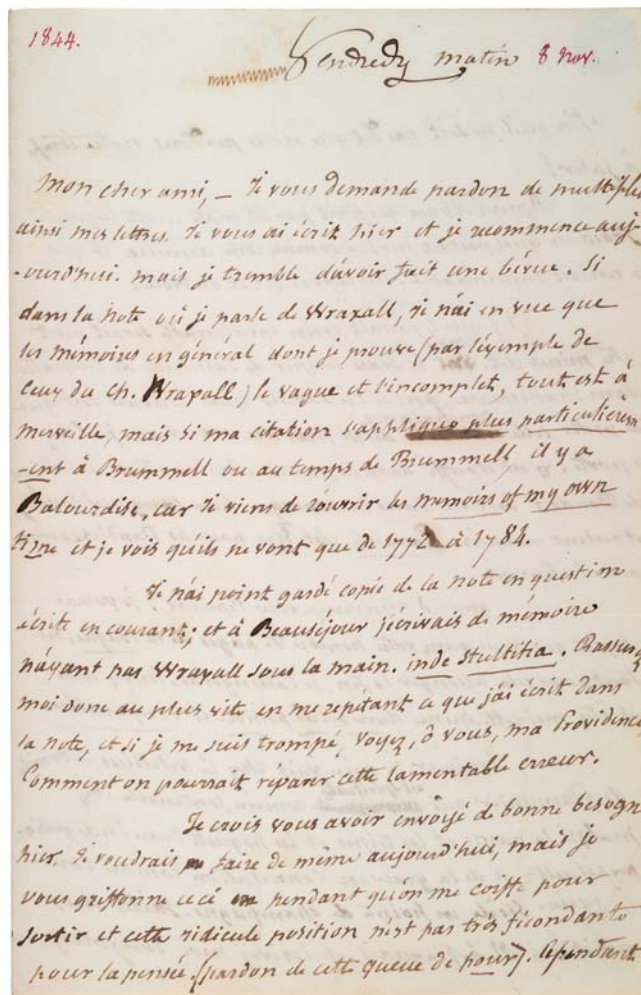 1844.
Vendredy matin 8 nov.
Mon cher ami, — Je vous demande pardon de multiplier
ainsi mes lettres. Je vous ai écrit hier et je recommence auj-
-ourd'hui. mais je tremble d'avoir fait une bévue. Si
dans la note où je parle de Wraxall, je n'ai en vue que
les mémoires en général dont je prouve (par l'exemple de
ceux du Ch. Wraxall) le vague et l'incomplet, tout est à
merveille, mais si ma citation s'applique plus particulièrem
-ent à Brummell ou au temps de Brummell, il y a
Balourdise, car je viens de rouvrir les memoirs of my own
time et je vois qu'ils ne vont que de 1772 à 1784.
Je n'ai point gardé copie de la note en question
écrite en courant; et à Beauséjour j'écrivais de mémoire
n'ayant pas Wraxall sous la main. inde stultitia. Rassurez
moi donc au plus vite en me répétant ce que j'ai écrit dans
la note, et si je me suis trompé, voyez, ô vous, ma Providence,
Comment on pourrait réparer cette lamentable erreur.
Je crois vous avoir envoyé de bonne besogn
hier. Je voudrais faire de même aujourd'hui, mais je
vous griffonne ceci pendant qu'on me coiffe pour
sortir et cette ridicule position n'est pas très fécondante
pour la pensée. (pardon de cette queue de pour). Cependant